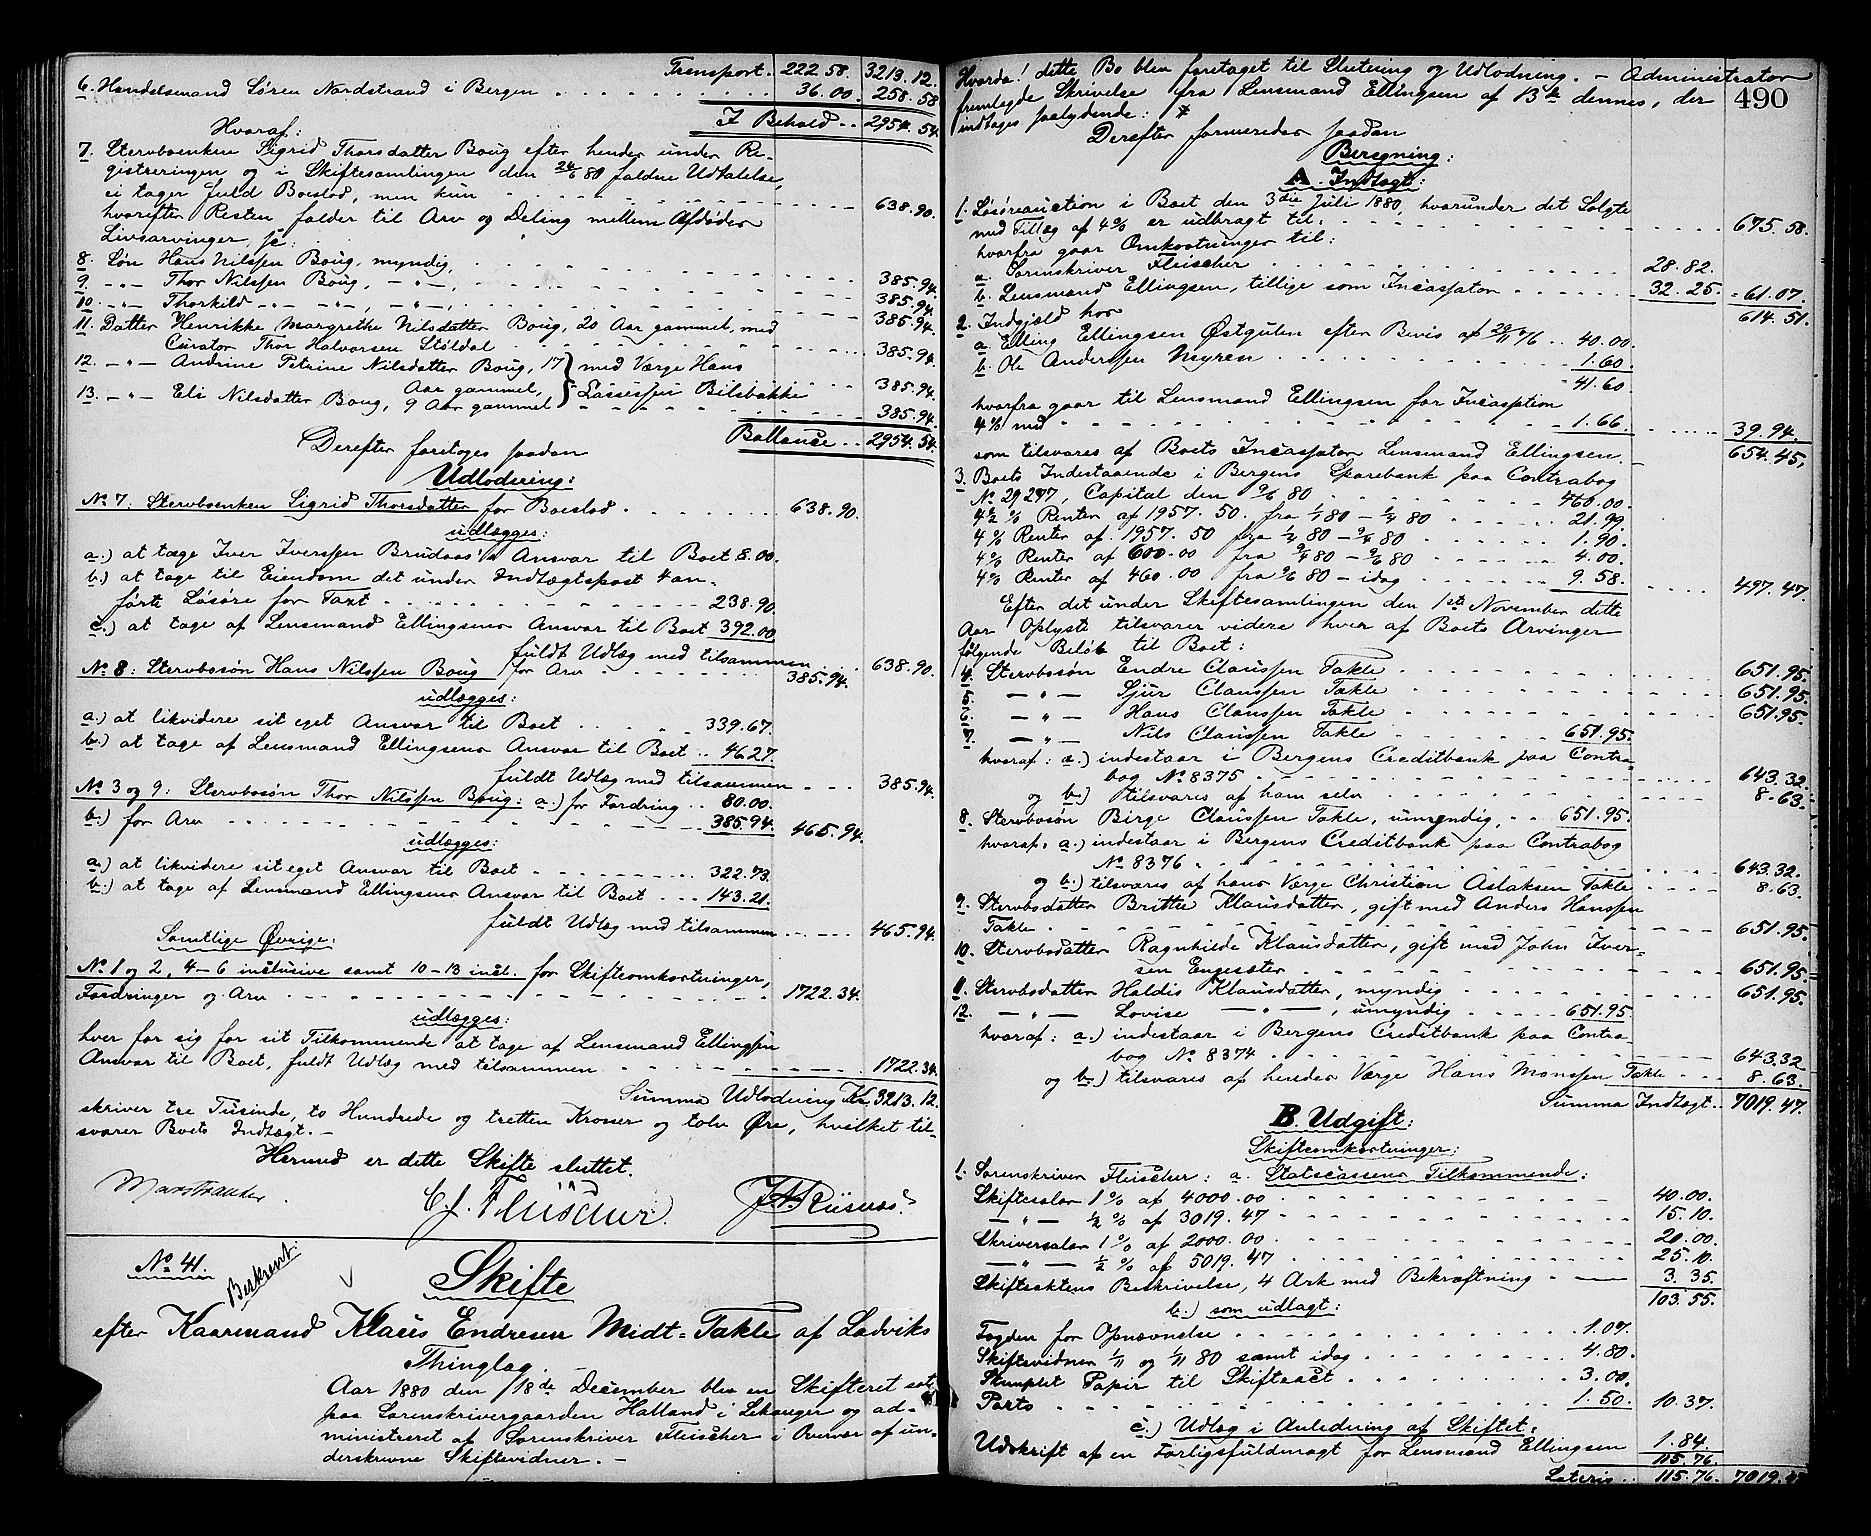 Transport.. 222.58. 3213.12.
6. Handelsmand Søren Nordstrand i Bergen . . . . 36.00. 258.58
I Behold.. 2954.54.
Hvoraf:
7. Stervboenken Sigrid Thorsdatter Boug efter hendes under Re-
gistreringen og i Skiftesamlingen den 24/6 80 faldne Udtalelse,
ei tager fuld Boeslod, men kun . . . . 638.90.
hvorefter Resten falder til Arv og Deling mellem Afdødes
Livsarvinger, se:
8. Søn Hans Nilssen Boug, myndig, . . . . 385.94.
9. -"- Thor Nilssen Boug, -"-, . . . . 385.94.
10. -"- Thorkild -"- -"-, -"-, . . . . 385.94.
11. Datter Henrikke Margrethe Nilsdatter Boug, 20 Aar gammel, med
Curator Thor Halvorsen Stöldal . . . . 385.94.
12. -"- Andrine Petrine Nilsdatter Boug, 17 Aar gammel, } med Værge Hans . . . . 385.94.
13. -"- Eli Nilsdatter Boug, 9 Aar gammel } Lassessen Bilsbakke . . . . 385.94.
Ballance.. 2954.54.
Derefter foretoges saadan
Udlodning:
No 7: Stervboenken Sigrid Thorsdatter for Boeslod . . . . 638.90.
udlægges:
a.) at tage Iver Iverssen Brudaas's Ansvar til Boet 8.00.
b.) at tage til Eiendom det under Indtægtspost 4 an-
førte Løsøre for Taxt . . . . 238.90.
c.) at tage af Lensmand Ellingsens Ansvar til Boet 392.00
fuldt Udlæg med tilsammen . . . 638.90.
No 8: Stervbosøn Hans Nilssen Boug for Arv . . . . 385.94.
udlægges:
a.) at likvidere sit eget Ansvar til Boet . . . . 339.67.
b.) at tage af Lensmand Ellingsens Ansvar til Boet .. 46.27.
fuldt Udlæg med tilsammen . . . 385.94.
No 3 og 9: Stervbosøn Thor Nilssen Boug: a.) for Fordring .. 80.00.
b.) for Arv . . . . 385.94. 465.94.
udlægges:
a.) at likvidere sit eget Ansvar til Boet . . . . 322.73.
b.) at tage af Lensmand Ellingsens Ansvar til Boet ... 143.21.
fuldt Udlæg med tilsammen . . . . 465.94.
Samtlige Øvrige:
No 1 og 2, 4-6 inclusive samt 10-13 incl. for Skifteomkostninger,
Fordringer og Arv . . . . 1722.34.
udlægges:
hver for sig for sit Tilkommende at tage af Lensmand Ellingsens
Ansvar til Boet, fuldt Udlæg med tilsammen . . . . 1722.34.
Summa Udlodning Kr. 3213.12.
skriver tre Tusinde, to Hundrede og tretten Kroner og tolv Øre, hvilket til-
svarer Boets Indtægt. -
Hermed er dette Skifte sluttet.
Marstrander. C. J. Fleischer. J. A. Riisnes.
No 41.
Beskrevet:
Skifte
efter Kaarmand Klaus Endresen Midt-Takle af Ladviks
Thinglag.
Aar 1880 den 18de December blev en Skifteret sat
paa Sorenskrivergaarden Halland i Lekanger og ad-
ministreret af Sorenskriver Fleischer i Overvær af un-
derskrevne Skiftevidner. -
490
Hvorda! dette Bo blev foretaget til Slutning og Udlodning. - Administrator
fremlagde Skrivelse fra Lensmand Ellingsen af 13de dennes, der
indtages saalydende: #
Derefter formeredes saadan
Beregning:
A. Indtægt:
1. Løsøreauction i Boet den 3die Juli 1880, hvorunder det Solgte
med Tillæg af 4% er udbragt til: . . . . 675.58.
hvorfra gaar Omkostninger til:
a. Sorenskriver Fleischer . . . . 28.82.
b. Lensmand Ellingsen, tillige som Incassator . . . . 32.25. = 61.07.
614.51.
2. Indgjæld hos
a. Elling Ellingsen Østgulen efter Bevis af 29/11 76 .. 40.00.
b. Ole Anderssen Myren . . . . 1.60.
41.60.
hvorfra gaar til Lensmand Ellingsen for Incassation
4% med . . . . 1.66. . . . 39.94.
som tilsvares af Boets Incassator Lensmand Ellingsen. 654.45,
3. Boets Indestaaende i Bergens Sparebank paa Contrabog
No 29247, Capital den 9/6 80 . . . . 460.00.
4½ % Renter af 1957.50. fra 1/1 80 - 1/4 80 . . . . 21.99.
4% Renter af 1957.50 fra 1/4 80 - 9/4 80 . . . . 1.90.
4% Renter af 600.00 fra 9/4 80 - 9/6 80 . . . . 4.00.
4% Renter af 460.00 fra 9/6 80 - idag . . . . 9.58. . . . 497.47.
Efter det under Skiftesamlingen den 1ste November dette
Aar Oplyste tilsvarer videre hver af Boets Arvinger
følgende Beløb til Boet:
4. Stervbosøn Endre Claussen Takle . . . . 651.95.
5. -"- Sjur Claussen Takle . . . . 651.95.
6. -"- Hans Claussen Takle . . . . 651.95.
7. -"- Nils Claussen Takle . . . . 651.95.
hvoraf: a.) indestaar i Bergens Creditbank paa Contra-
bog No 8375 . . . . 643.32.
og b.) tilsvares af ham selv . . . . 8.63.
8. Stervbosøn Birge Claussen Takle, umyndig, .. 651.95.
hvoraf: a.) indestaar i Bergens Creditbank paa Contrabog
No 8376 . . . . 643.32.
og b.) tilsvares af hans Værge Christian Aslaksen Takle . . . . 8.63.
9. Stervbodatter Brithe Klausdatter, gift med Anders Hanssen
Takle . . . . 651.95.
10. Stervbodatter Ragnhilde Klausdatter, gift med John Iver-
sen Engesæter . . . . 651.95.
11. Stervbodatter Haldis Klausdatter, myndig . . . . 651.95.
12. -"- Lovise -"-, umyndig . . . . 651.95
hvoraf: a.) indestaar i Bergens Creditbank paa Contra-
bog No 8374 . . . . 643.32
og b.) tilsvares af hendes Værge Hans Monssen Takle . . . 8.63.
Summa Indtægt.. 7019.47.
B. Udgift:
Skifteomkostninger:
1. Sorenskriver Fleischer: a. Statscassens Tilkommende:
Skiftesalær 1% af 4000.00 . . . . 40.00.
-"- ½% af 3019.47 . . . . 15.10.
Skriversalær 1% af 2000.00 . . . . 20.00.
-"- ½% af 5019.47 . . . . 25.10.
Skifteaktens Beskrivelse, 4 Ark med Bekræftning . - 3.35.
103.55.
b.) som udlagt:
Fogden for Opnævnelse . . . . 1.07.
Skiftevidner 1/11 og 1/11 80 samt idag . . . . 4.80.
Stemplet Papir til Skifteact . . . . 3.00.
Porto . . . . 1.50. 10.37.
c.) Udlæg i Anledning af Skiftet:
Udskrift af en Forligsfuldmagt for Lensmand Ellingsen 1.84.
115.76.
Lateris.. 115.76. 7019.47